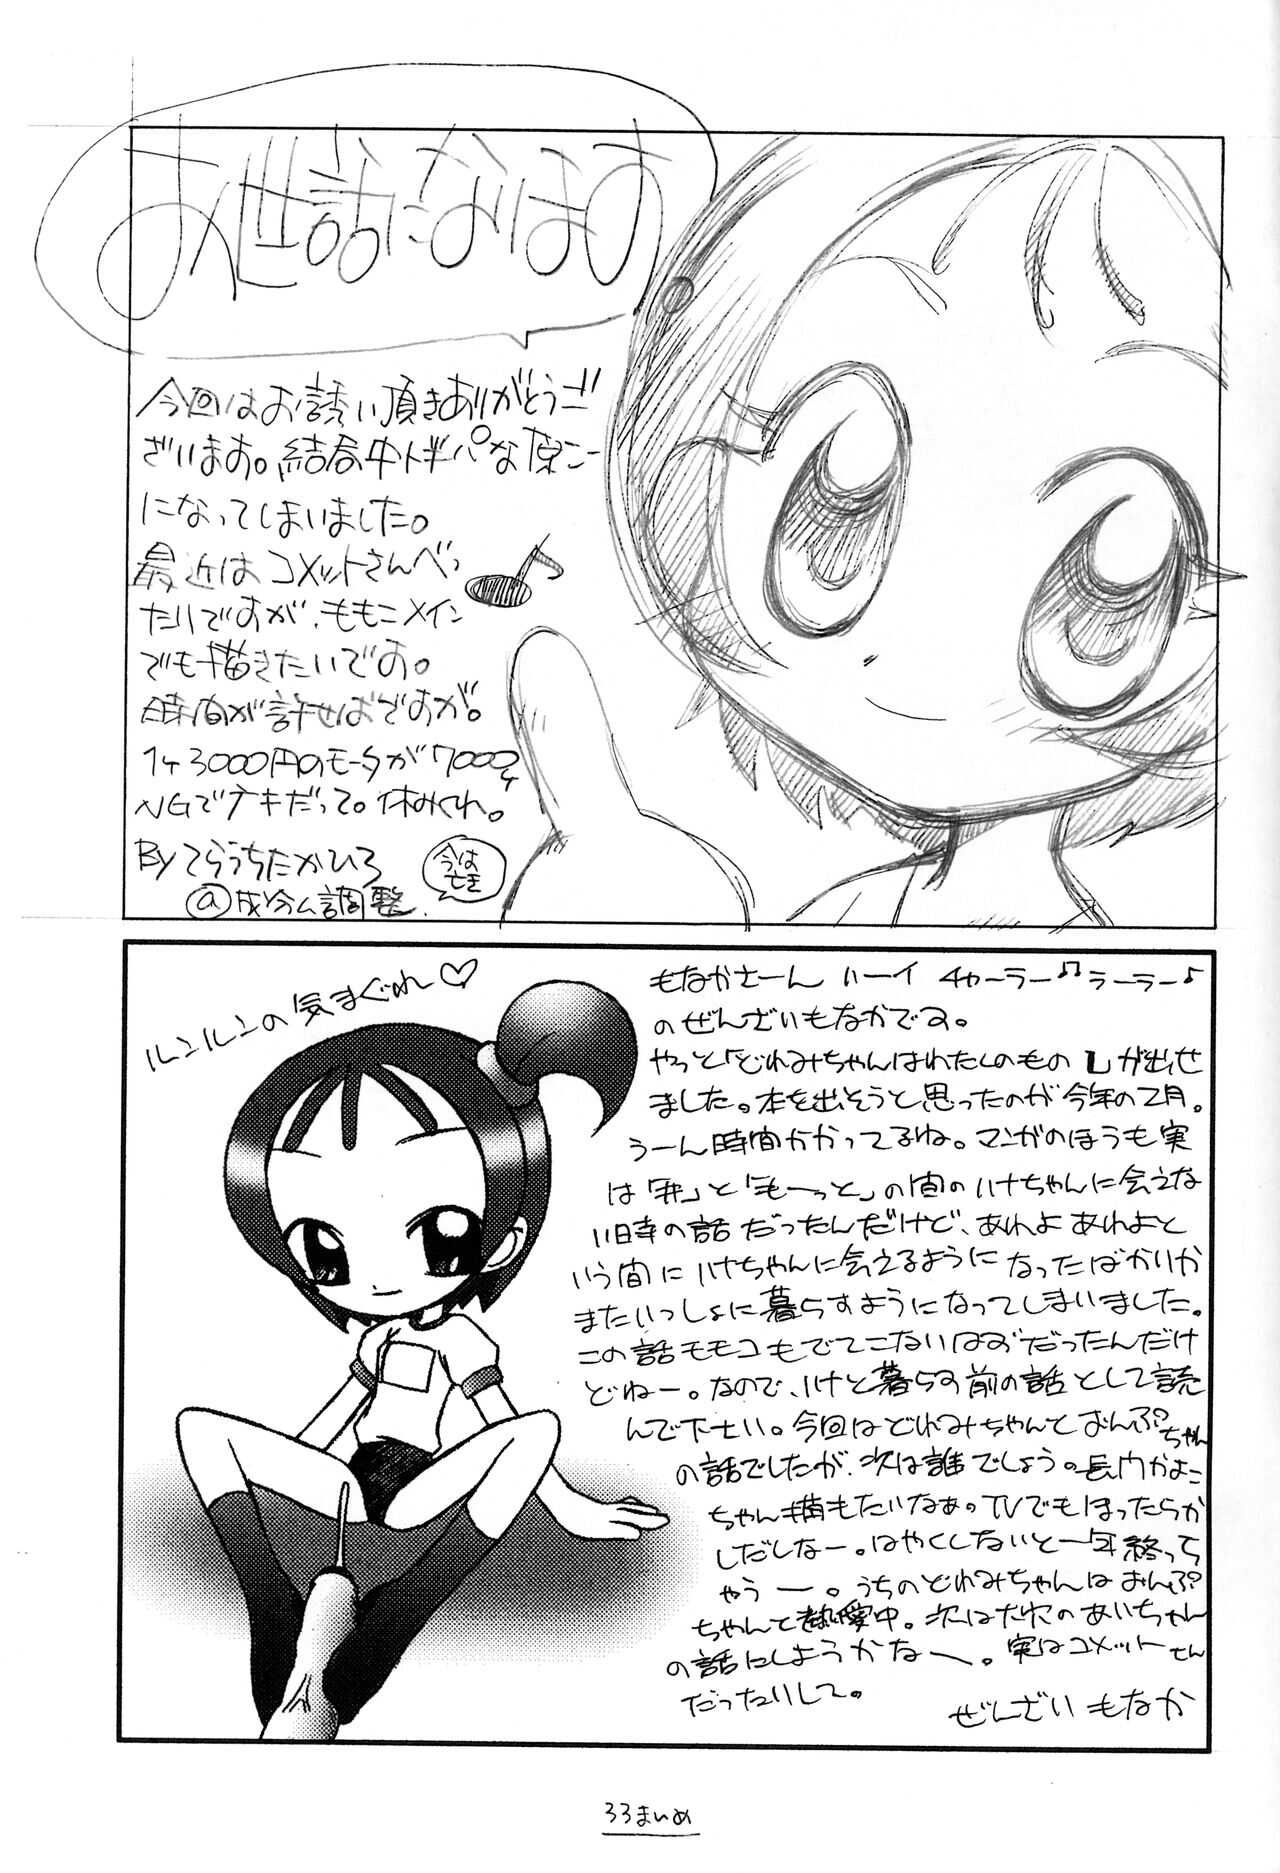 お世話になります
今回はお誘い頂きありがとうご
ざいます。結局中トギパな原こー
になってしまいました。
最近はコメットさんべっ
たりですが、ももこメイン
でも描きたいです。
時間が許せばですが。
1ヶ3000円のモータが7000ヶ
NGでナキだって。休みくれ。
By てらうちたかひろ
@成分ム調整
今は亡き
ルンルンの気まぐれ♡
もなかさーん ハーイ チャーラー♫ラーラー♪
のぜんざいもなかです。
やっと「どれみちゃんはわたしのもの」が出せ
ました。本を出そうと思ったのが今年の2月。
うーん時間かかってるね。マンガのほうも実
は「#」と「もーっと」の間のハナちゃんに会えな
い時の話だったんだけど、あれよあれよと
いう間にハナちゃんに会えるようになったばかりか
またいっしょに暮らすようになってしまいました。
この話モモコもでてこないはずだったんだけ
どねー。なので、ハナと暮らす前の話として読
んで下さい。今回はどれみちゃんとおんぷちゃん
の話でしたが、次は誰でしょうの長門かよこ
ちゃん描もたいなぁのTVでもほったらか
しだしなー。はやくしないと一年終っち
ゃうー。うちのどれみちゃんはおんぷ
ちゃんと熱愛中。次はだれのあいちゃん
の話にしようかなー。実はコメットさん
だったりして。
ぜんざいもなか
33まいめ